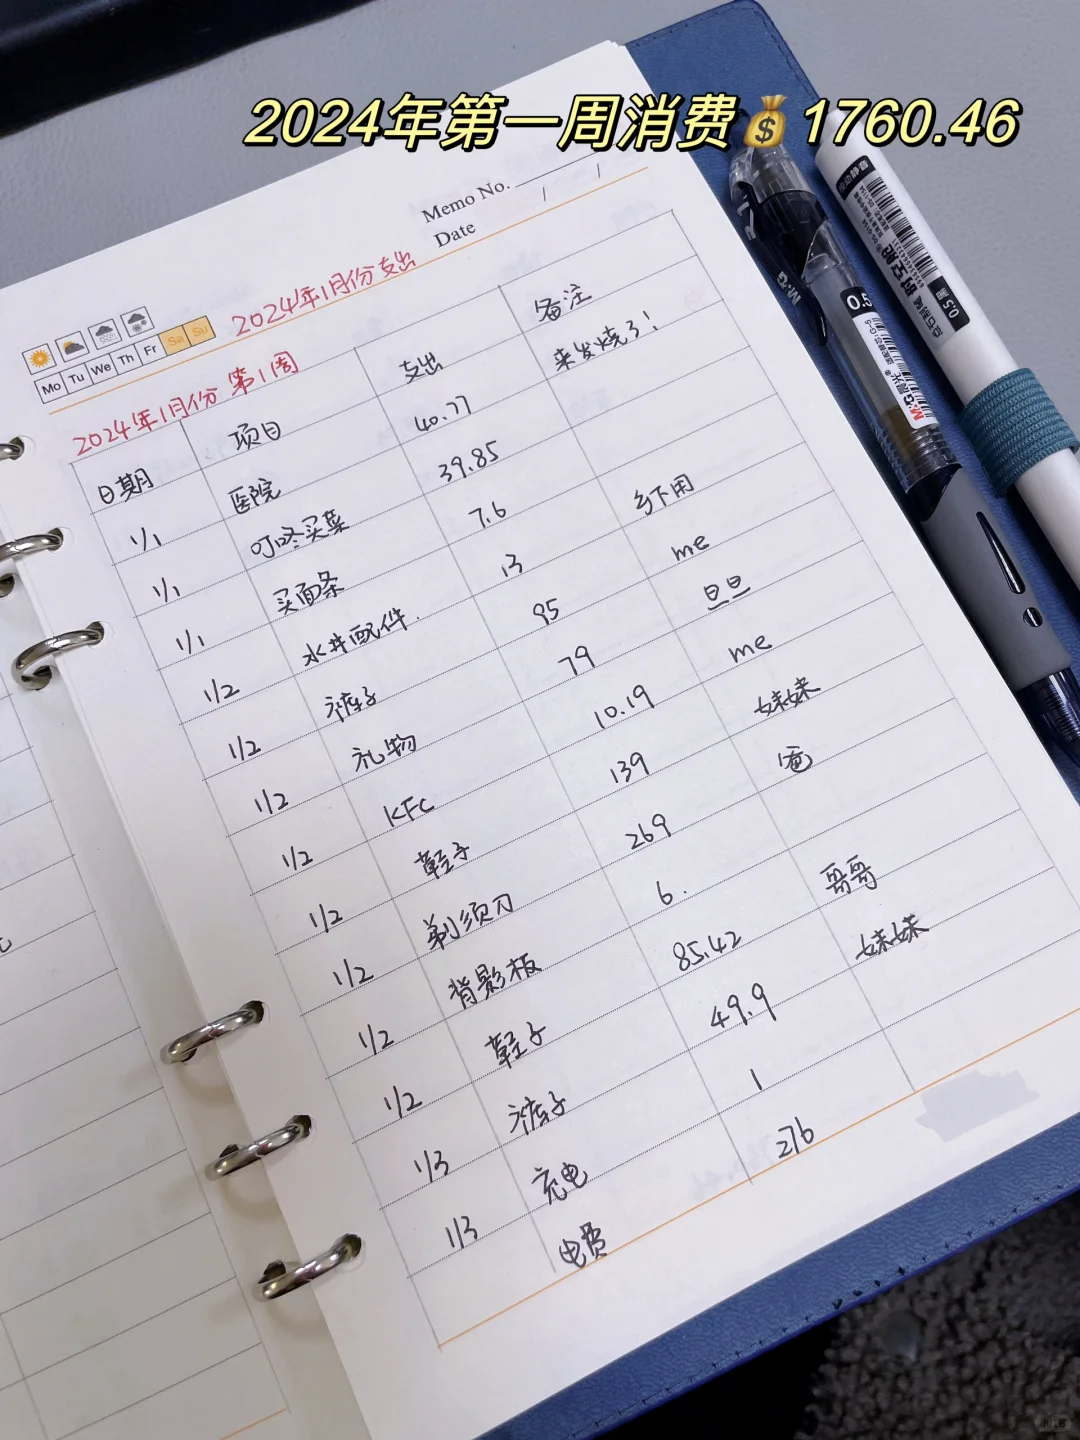 2024年第一周消费💰1760.46
Memo No.
Date / /
2024年1月份支出
Mo Tu We Th Fr Sa Su
2024年1月份 第1周
日期 项目 支出 备注
1/1 医院 40.77 来发烧了!
1/1 叮咚买菜 39.85
1/1 买面条 7.6
1/2 水井配件. 13 乡下用
1/2 裤子 95 me
1/2 礼物 79 旦旦
1/2 KFC 10.19 me
1/2 鞋子 139 妹妹
1/2 剃须刀 269 爸
1/2 背影板 6.
1/2 鞋子 85.42 哥哥
1/3 裤子 49.9 妹妹
1/3 充电 1
电费 276
M&G
0.5
M&G晨光
时空舱
0.5黑